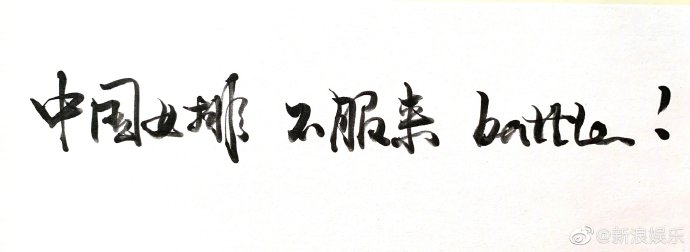 中国女排 不服来 battle！
@新浪娱乐